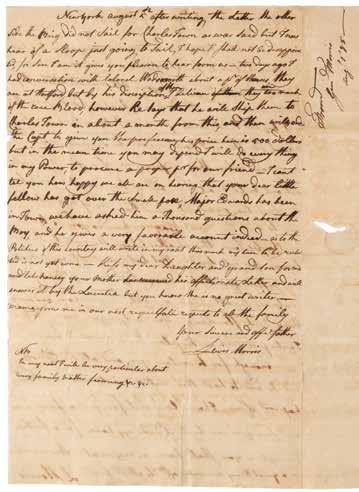 New york august 1st after writing the letter the other
side the Brig did not Sail for Charles Town as was said but I now
hear of a Sloop just going to Sail, I hope I shall not be disappoin
ted, for Sure I am it gives you pleasure to hear from us — two days ago I
had conversation with Colonel Wadsworth about a pr. of Horses, they
are at Hartford but by his discription of them I believe they are too much
of the coach Breed, however he says that he will Ship them to
Charles Town in about a month from this, and then write
the Capt to give you the preference his price here is 500 Dollars
but in the mean time you may depend I will do every thing
in my Power, to procure a proper pr for our friend — I cant
tell you how happy we all are on hearing that your dear little
fellow has got over the Small pox Major Edwards has been
in Town, we have asked him a thousand questions about the
Boy, and he gives a very favourable account indeed — as to the
Politics of this Country will write in my next this much my son to be
ted is not yet come — kiss my dear Daughter and grand son for us
and tell her your Mother has received her affectionate Letter, and will
answer it by the Lucretia but you know she is no great writer —
mama joins me in our most respectful respects to all the family
Your Sincere and afft. father
Lewis Morris
NB
In my next I will be very particular about
every family matter farming &c &c
From
Genl Morris
Aug. 1